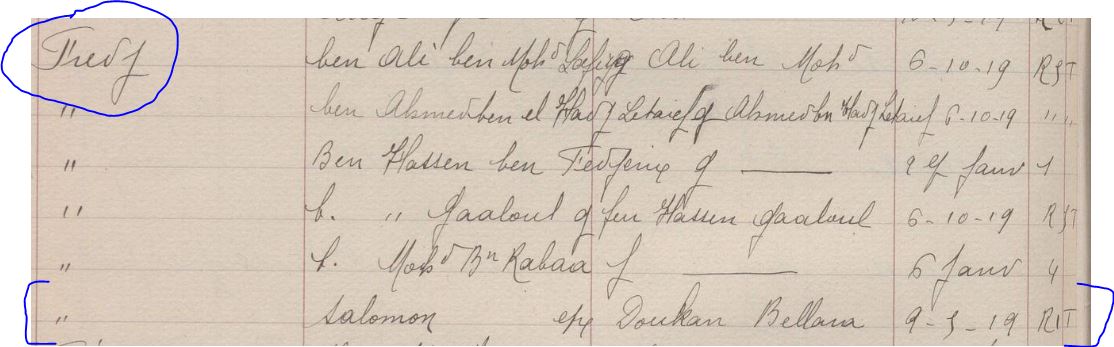 Fredj ben Ali ben Mohd Ali ben Mohd 6-10-19 RST
" ben Ahmed ben el Hadj Letaief g Ahmed bn Hadj Letaief 6-10-19 " "
" Ben Hassen ben g — Janv 1
" b. " Gaaloul g feu Hassen Gaaloul 6-10-19 RST
" b. Mohd Bn Rabaa f — 6 Janv 4
" Salomon epx Doukan Bellara 9-5-19